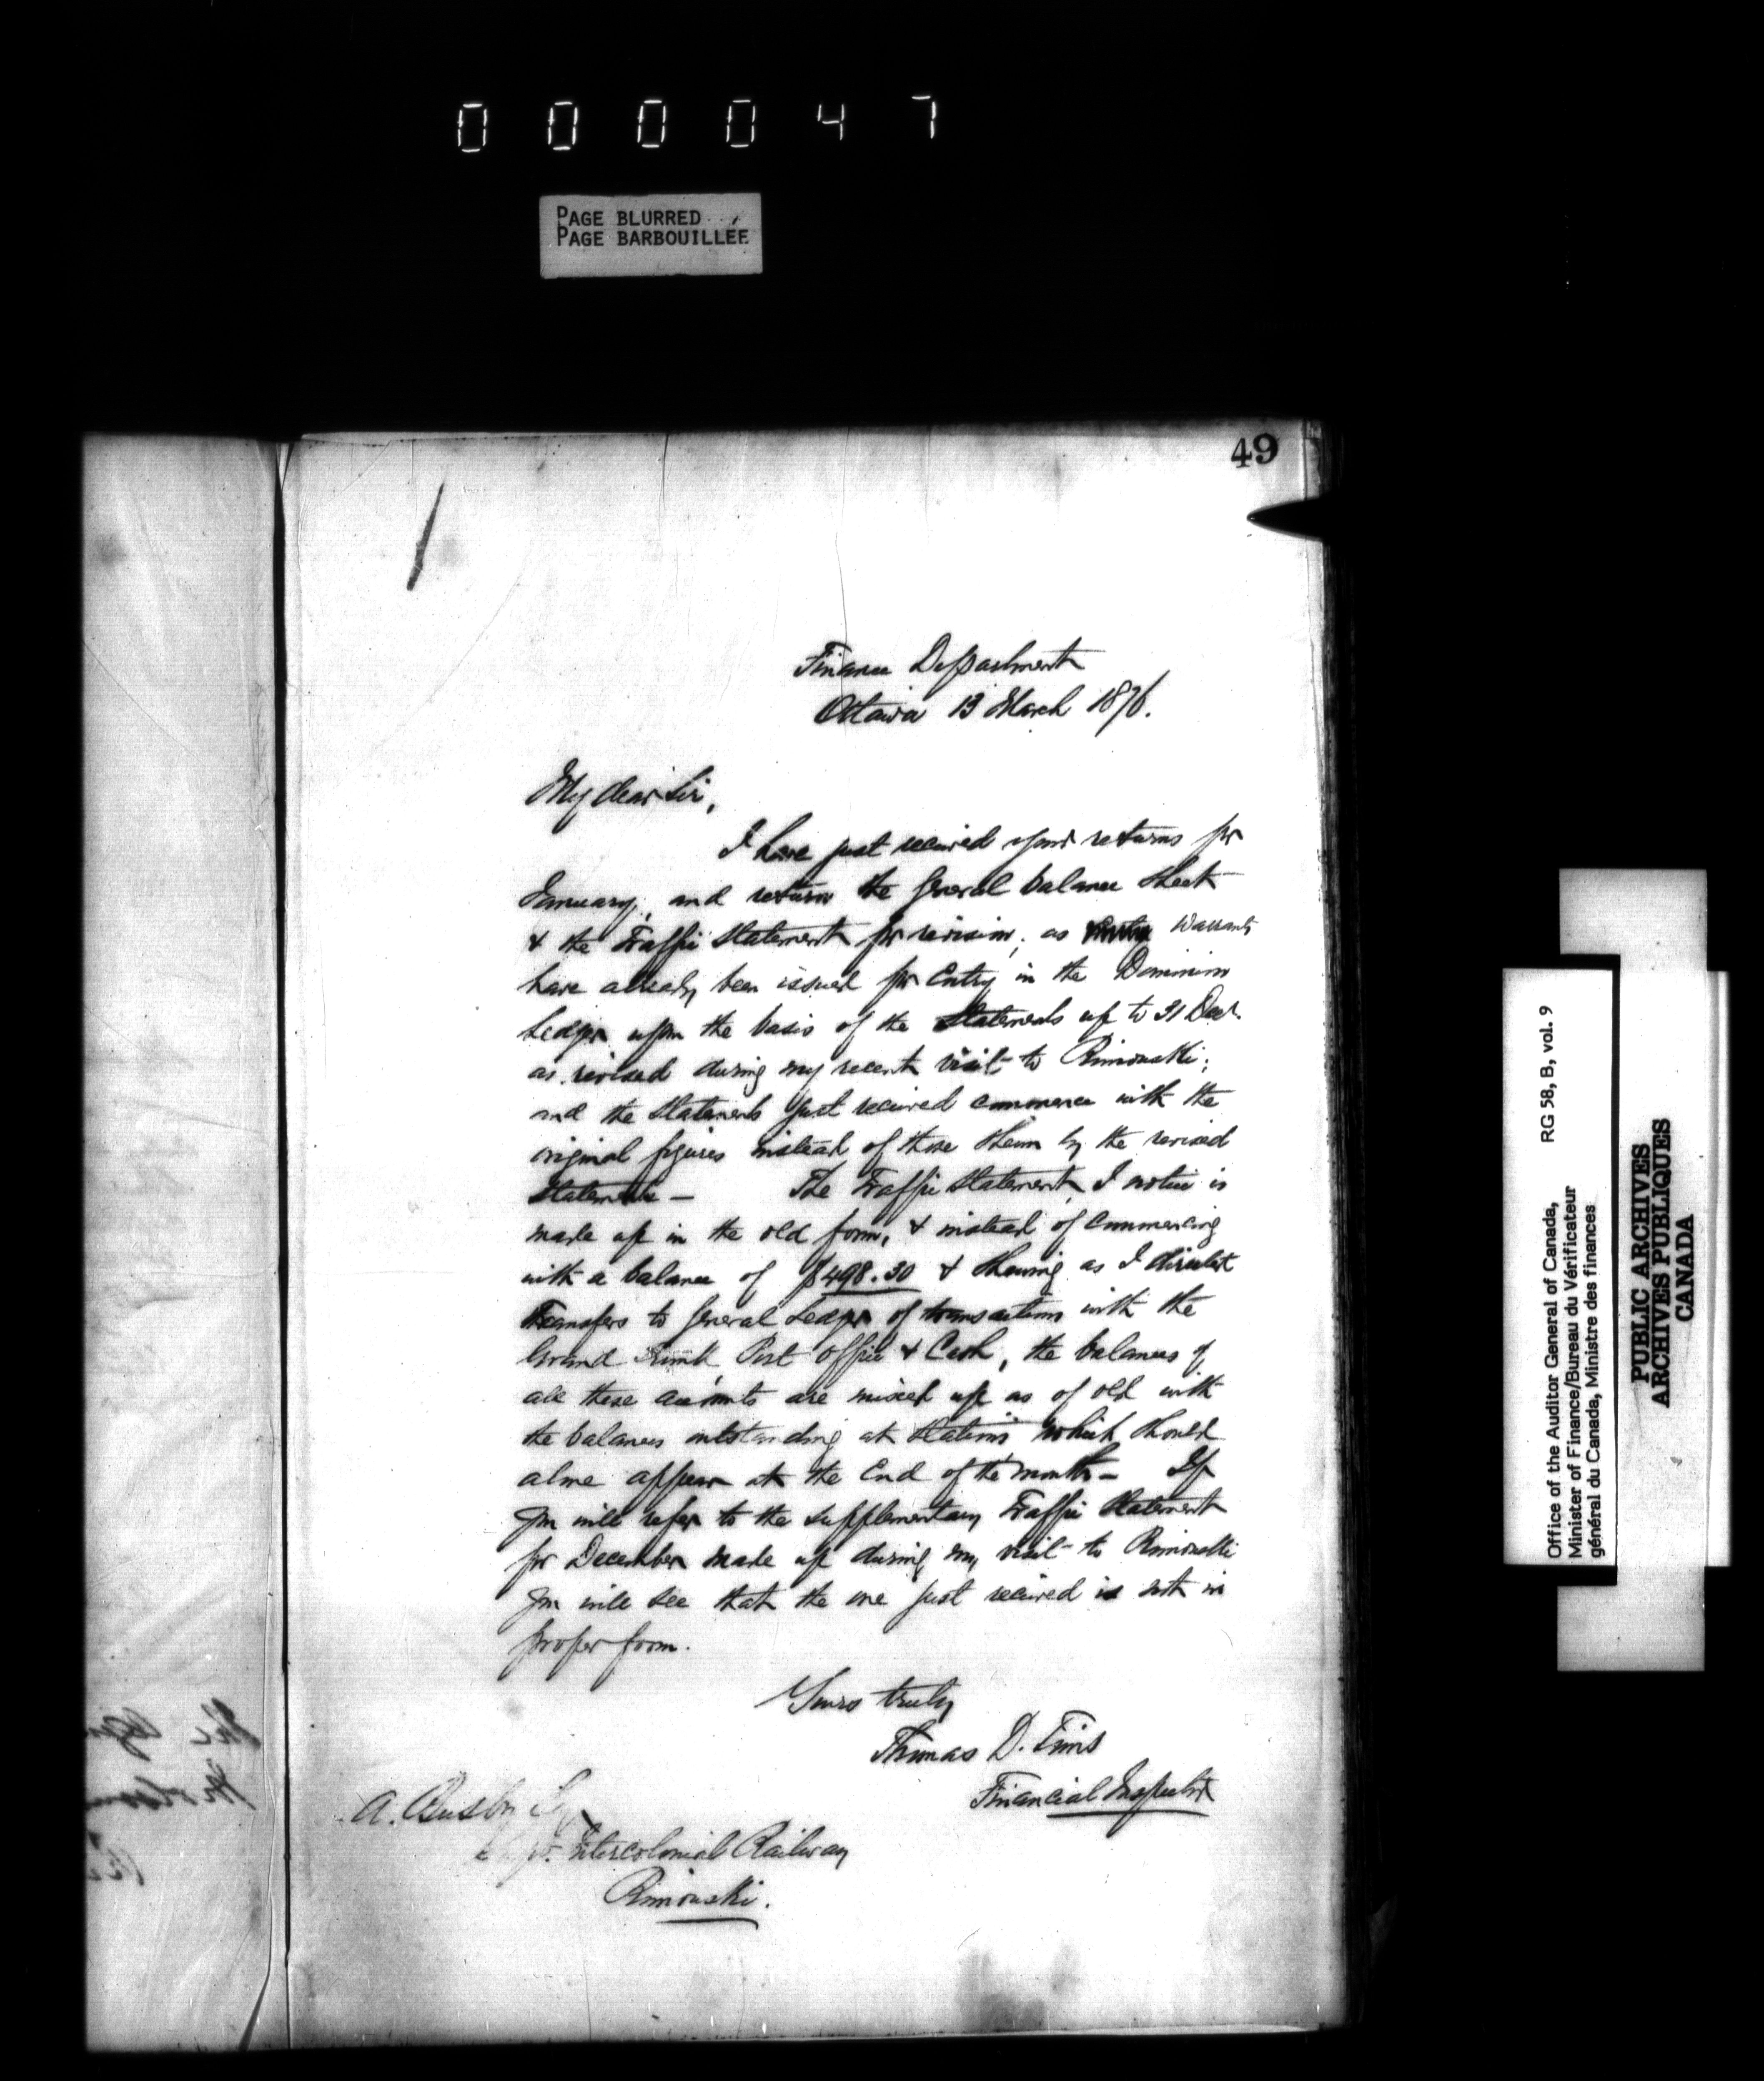 000047
PAGE BLURRED
PAGE BARBOUILLÉE
49
Finance Department
Ottawa 13 March 1876.
My dear Sir,
I have just received your returns for
January, and return the General balance sheet
& the Traffic Statement for revision, as Warrants
have already been issued for Entry in the Dominion
Ledger upon the basis of the Statements up to 31 Decr.
as revised during my recent visit to Rimouski;
and the statements just received commence with the
original figures instead of those shewn by the revised
statements — The Traffic Statement, I notice is
made up in the old form, & instead of commencing
with a balance of $498.30 & shewing as I directed
transfers to General Ledger of transactions with the
Grand Trunk Post Office & Cash, the balances of
all these accounts are mixed up as of old with
the balances outstanding at stations which should
alone appear at the End of the month — If
you will refer to the supplementary Traffic Statement
for December made up during my visit to Rimouski
you will see that the one just received is not in
proper form.
Yours truly
Thomas D. Tims
Financial Inspector
A. Busby Esq
Intercolonial Railway
Rimouski.
Office of the Auditor General of Canada, RG 58, B, vol. 9
Minister of Finance/Bureau du Vérificateur
général du Canada, Ministre des finances
PUBLIC ARCHIVES
ARCHIVES PUBLIQUES
CANADA